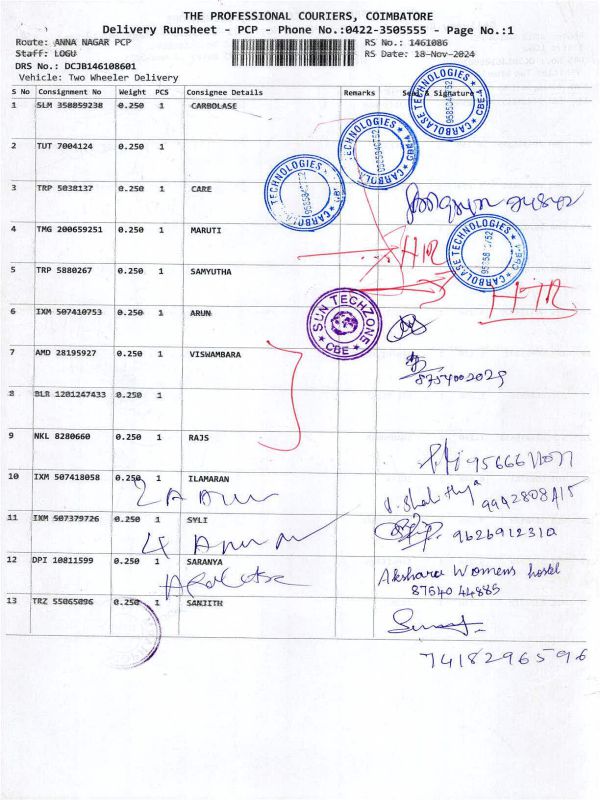 THE PROFESSIONAL COURIERS, COIMBATORE
Delivery Runsheet - PCP - Phone No.:0422-3505555 - Page No.:1
Route: ANNA NAGAR PCP RS No.: 1461086
Staff: LOGU RS Date: 18-Nov-2024
DRS No.: DCJB146108601
Vehicle: Two Wheeler Delivery
S No Consignment No Weight PCS Consignee Details Remarks Seal & Signature
1 SLM 350859238 0.250 1 CARBOLASE
CARBOLASE TECHNOLOGIES CBE-4
2 TUT 7004124 0.250 1
CARBOLASE TECHNOLOGIES CBE-4
3 TRP 5038137 0.250 1 CARE
CARBOLASE TECHNOLOGIES
4 TMG 200659251 0.250 1 MARUTI
CARBOLASE TECHNOLOGIES CBE-4
5 TRP 5880267 0.250 1 SAMYUTHA
6 IXM 507410753 0.250 1 ARUN
SUN TECHZONE CBE
7 AMD 28195927 0.250 1 VISWAMBARA
8754002029
8 BLR 1201247433 0.250 1
9 NKL 8280660 0.250 1 RAJS
10 IXM 507418058 0.250 1 ILAMARAN
9942808415
11 IXM 507379726 0.250 1 SYLI
9626912310
12 DPI 10811599 0.250 1 SARANYA
Akshara Womens hostel
87540 44885
13 TRZ 55065096 0.250 1 SANJITH
7418296596